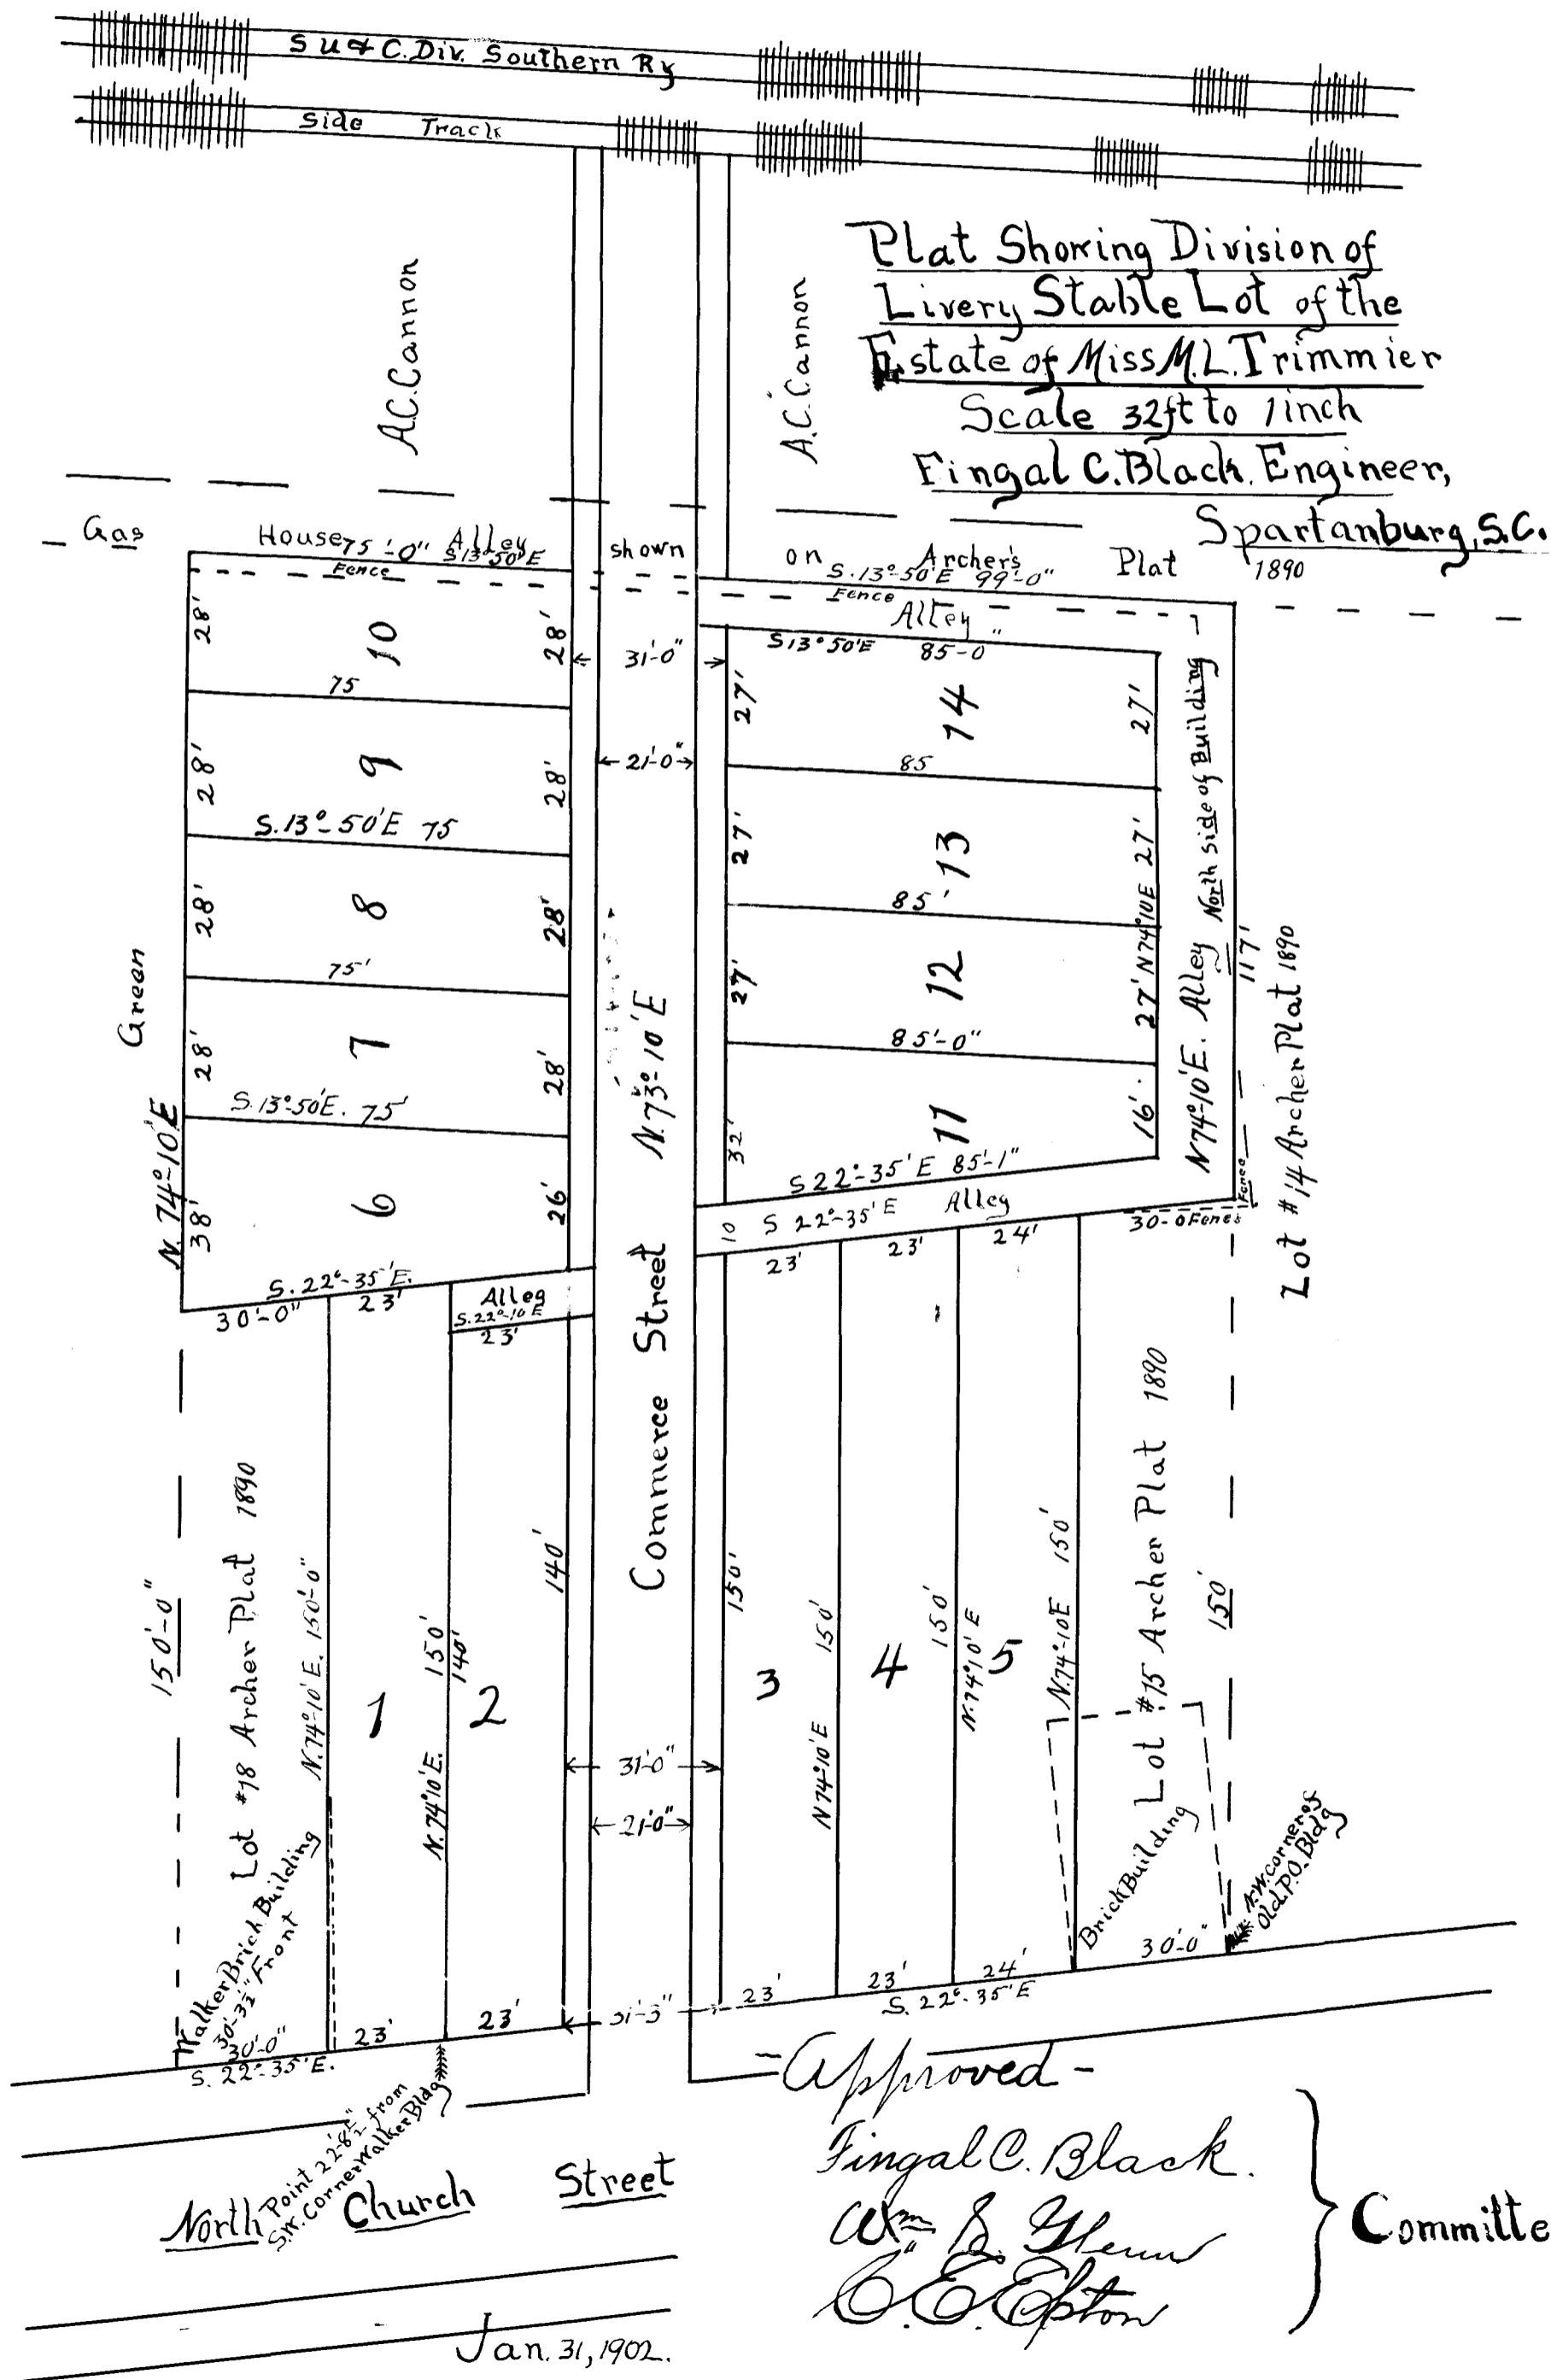 S U & C. Div. Southern Ry
Side Track
Plat Showing Division of
Livery Stable Lot of the
Estate of Miss M. L. Trimmier
Scale 32ft to 1 inch
Fingal C. Black. Engineer,
Spartanburg, S.C.
A.C. Cannon
A.C. Cannon
Gas House Alley shown on Archer's Plat 1890
75'-0" S 13°-50'E
Fence
S. 13°-50'E 99'-0"
Fence
Alley
S 13° 50'E 85-0"
28'
10
28'
75
28'
9
28'
S. 13°-50'E 75
28'
8
28'
75'
28'
7
28'
S. 13°-50'E. 75'
38'
6
26'
Green
N. 74°-10'E
S. 22°-35'E.
30'-0"
23'
Alley
S. 22°-10 E
23'
31'-0"
21'-0"
N. 73°-10'E
Commerce Street
27'
14
27'
85
27'
13
27'
85'
27'
12
27' N74°10E
85'-0"
32'
11
16'
S 22°-35'E 85'-1"
10
S 22°-35'E Alley
23'
23'
24'
30-0 Fence
Fence
N 74°-10'E. Alley North side of Building
117'
Lot #14 Archer Plat 1890
150'-0"
Lot #18 Archer Plat 1890
N. 74°-10'E. 150'-0"
1
150'
140'
N. 74°10'E.
2
140'
31'-0"
21'-0"
150'
3
N 74°-10'E 150'
4
150'
N. 74°10'E
5
N. 74°-10E 150'
Lot #15 Archer Plat 1890
150'
Brick Building
N.W. Corner of
Old P.O. Bldg
Walker Brick Building
30'-3½" Front
30'-0"
S. 22°-35'E.
23'
23'
31'-3"
23'
23'
24'
30'-0"
S. 22°-35'E
Point 22'-8½" from
S.W. Corner Walker Bldg
North Church Street
-Approved-
Fingal C. Black.
Wm S. Glenn
C. E. Epton
Committe
Jan. 31, 1902.